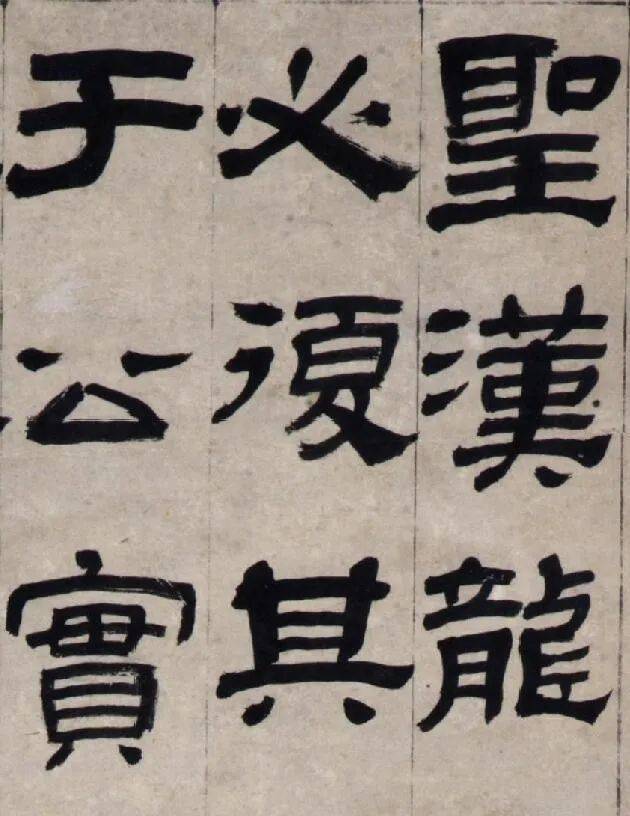 聖漢龍
必復其
于公實